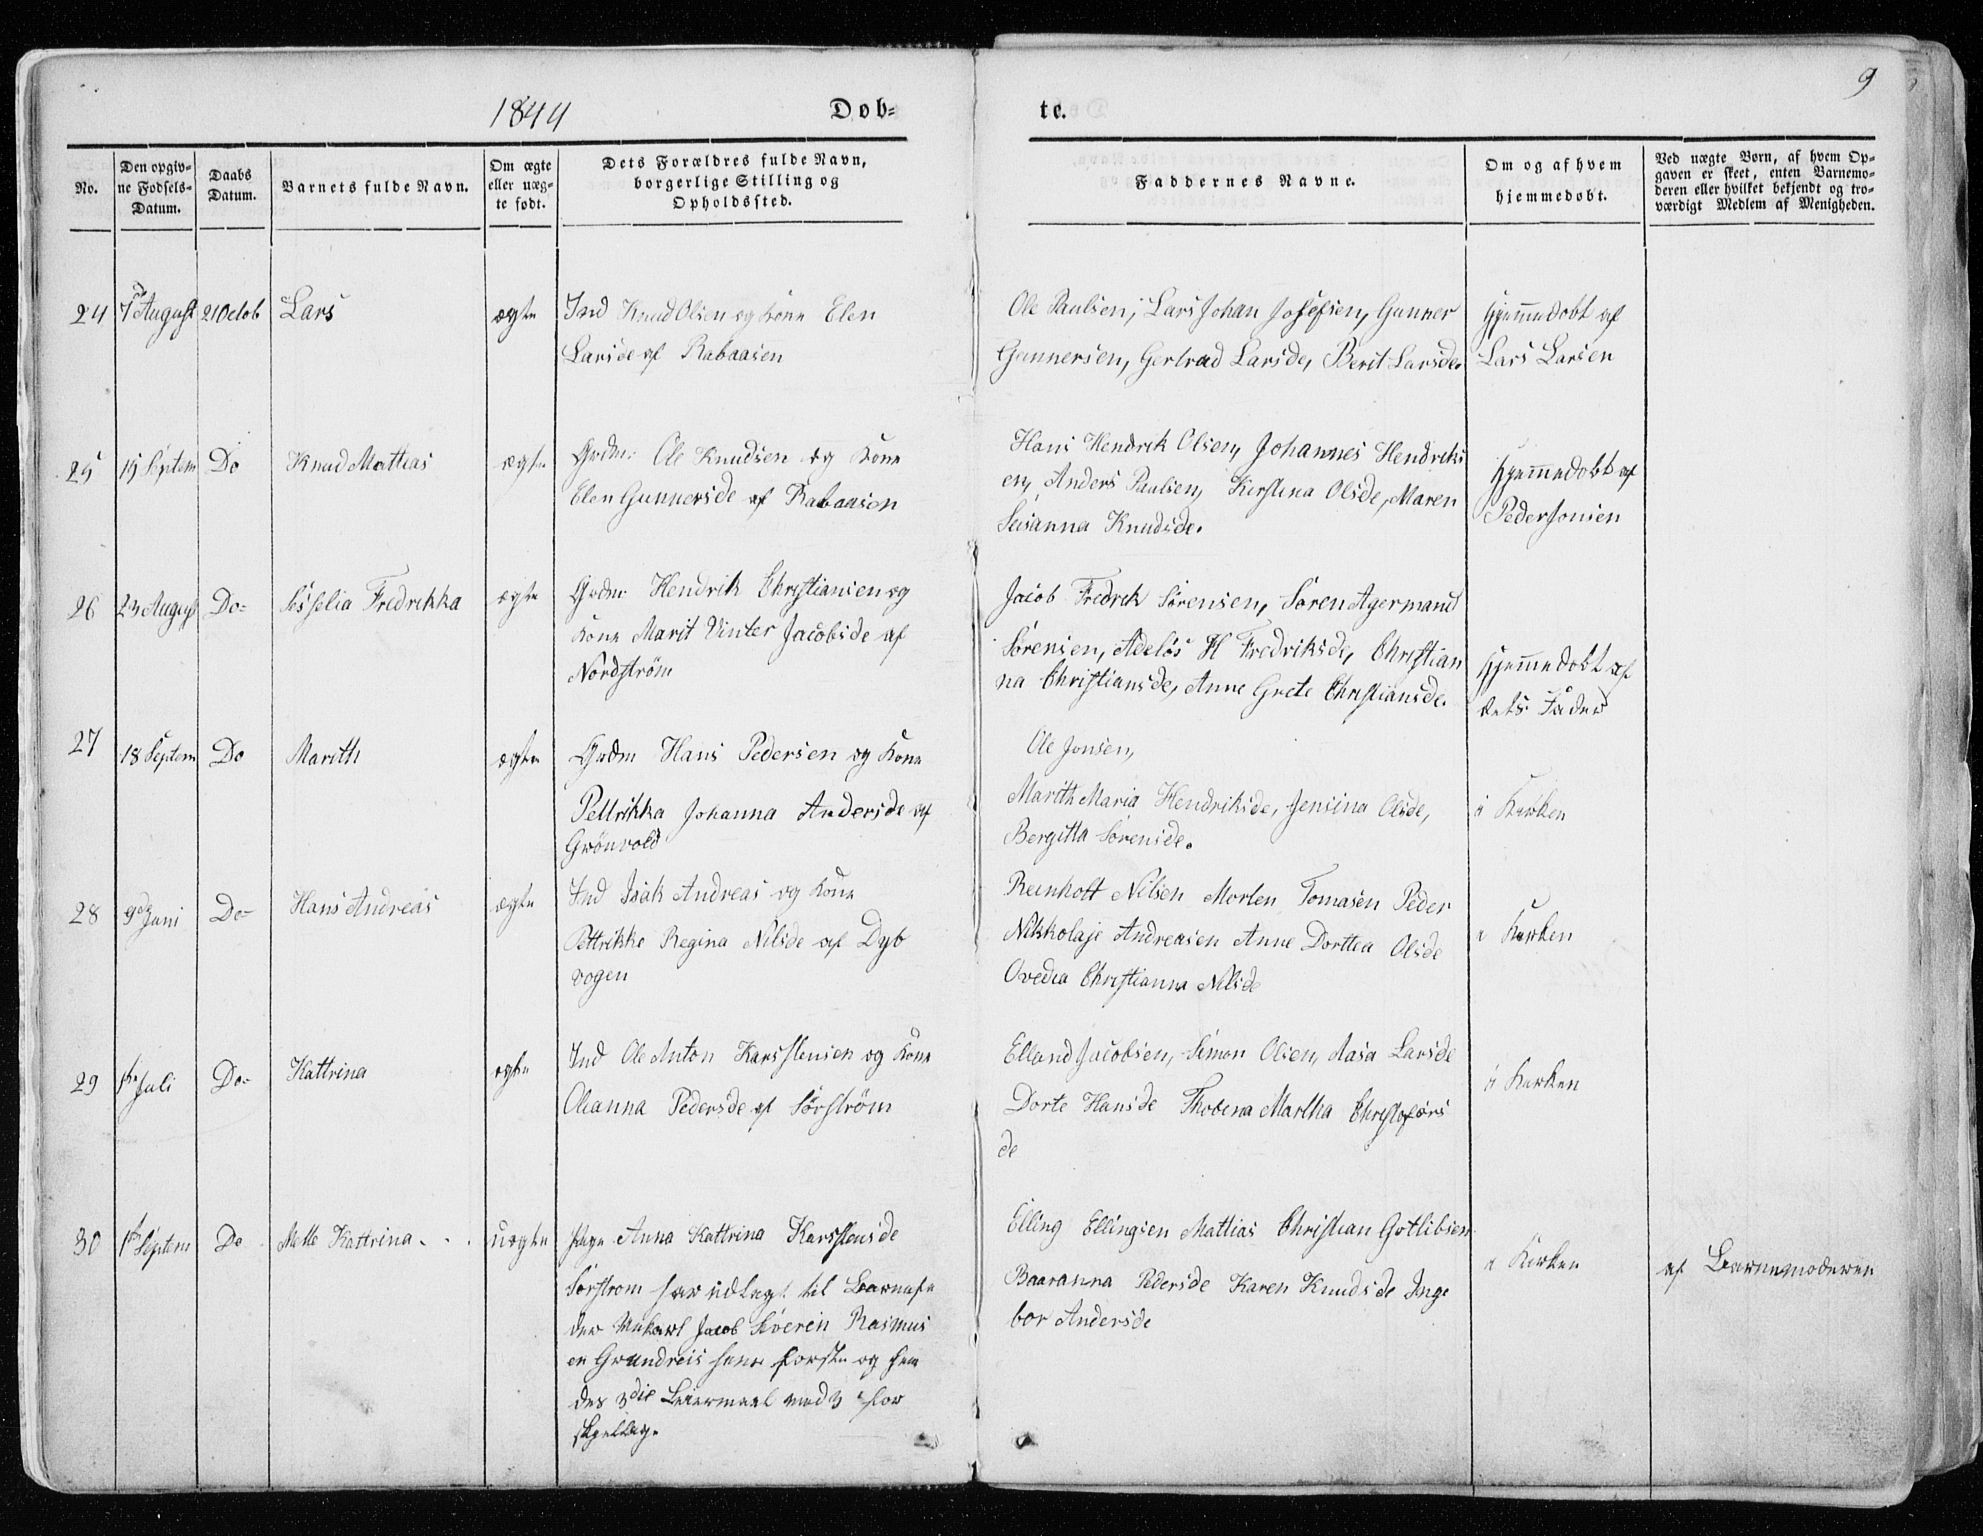 9
1844
Døb-
te.
No.
Den opgiv-
ne Fødsels-
Datum.
Daabs
Datum.
Barnets fulde Navn.
Om ægte
eller uæg-
te født.
Dets Forældres fulde Navn,
borgerlige Stilling og
Opholdssted.
Faddernes Navne.
Om og af hvem
hjemmedøbt.
Ved uægte Børn, af hvem Op-
gaven er skeet, enten Barnemo-
deren eller hvilket bekjendt og tro-
værdigt Medlem af Menigheden.
24
7de August
21 Octob
Lars
ægte
Ind Knud Olsen og kone Elen
Larsde af Rabaasen
Ole Paulsen, Lars Johan Josefsen, Gunner
Gunnersen, Gertrud Larsde, Berit Larsde.
Hjemmedøbt af
Lars Larsen
25
15 Septem
Do
Knud Mattias
ægte
Grdm: Ole Knudsen og Kone
Elen Gunnersde af Rabaasen
Hans Hendrik Olsen, Johannes Hendriks
en, Anders Paulsen, Kirstina Olsde, Maren
Susanna Knudsde.
Hjemmedøbt af
Peder Jonsen
26
23 August
Do-
Sisselia Fredrikka
ægte
Grdm: Hendrik Christiansen og
kone Marit Vinter Jacobsde af
Nordstrøm
Jacob Fredrik Sørensen, Søren Agermand
Sørensen, Adelos H Fredriksde, Christian
na Christiansde, Anne Grete Christiansde.
Hjemmedøbt af
dets Fader
27
18 Septem
Do
Marith
ægte
Grdm Hans Pedersen og Kone
Pettrikka Johanna Andersde af
Grönvold
Ole Jonsen,
Marith Maria Hendriksde, Jensina Olsde,
Bergitta Sørensde.
i Kirken
28
9de Juni
Do-
Hans Andreas
ægte
Ind Isak Andreas og Kone
Pettrikke Regina Nilsde af Dyb
vogen
Reinholt Nilsen Morten Tomasen Peder
Nikkolaje Andreasen Anne Dorttea Olsde
Ovedia Christianna Nilsde
i Kirken
29
1ste Juli
Do-
Kattrina
ægte
Ind Ole Anton Karsstensen og Kone
Oleanna Pedersde af Sørstrøm
Elland Jacobsen, Simon Olsen, Aasa Larsde
Dorte Hansde Thobena Martha Christoførs
de
i Kirken
30
1ste Septem
Do
Mette Kattrina
Uægte
Pige Anna Kattrina Karsstensde
Sørstrøm har udlagt til Barnefa
der Unkarl Jacob Siverin Rasmus
en Grundreis hans første og hen
des 3die Leiermaal med 3 for
skjellige.
Elling Ellingsen Mattias Christian Gotlibsen
Baaranna Pedersde Karen Knudsde Inge
bor Andersde
i Kirken
af Barnemoderen